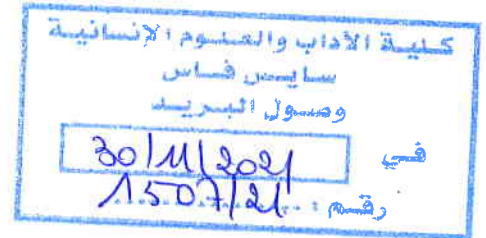 كلية الآداب والعلوم الإنسانية
سايس فاس
وصول البريد
في 30/11/2021
رقم : 1507/21